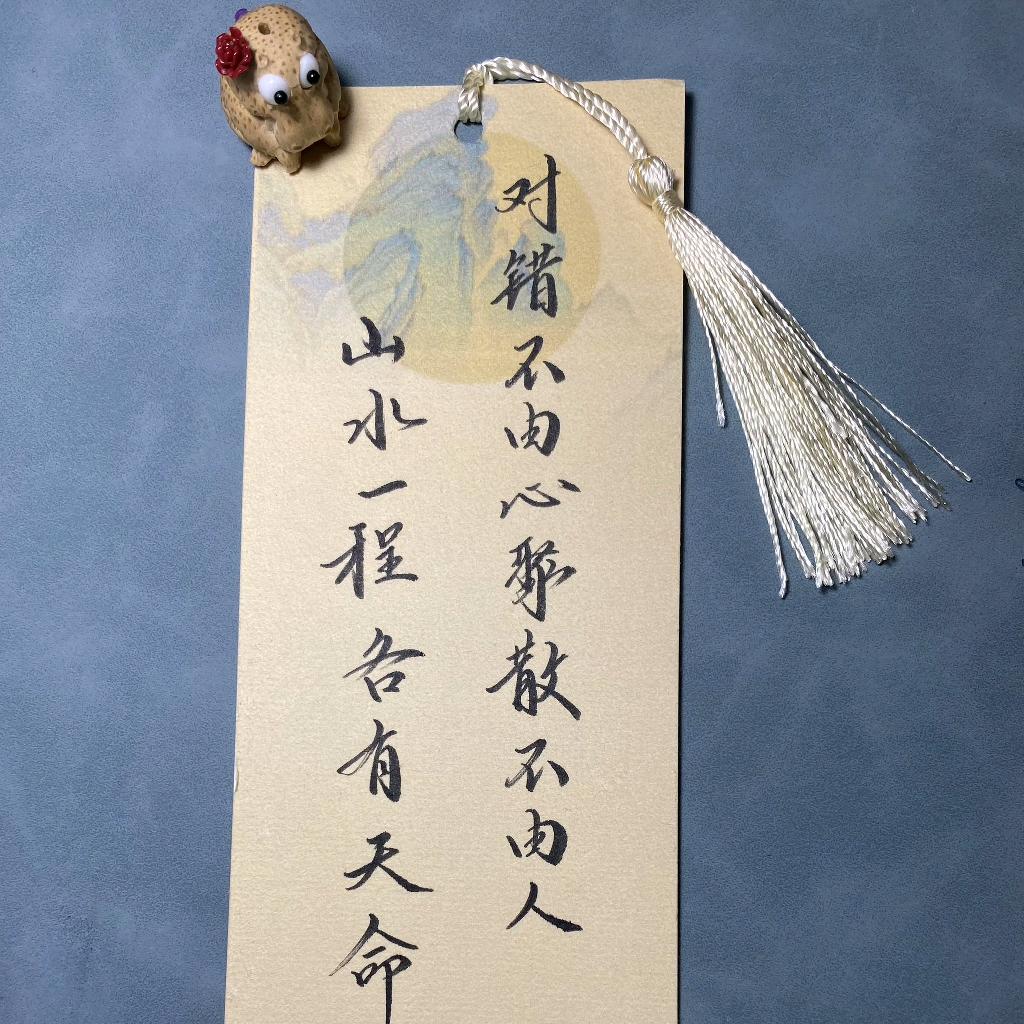 对错不由心聚散不由人
山水一程各有天命